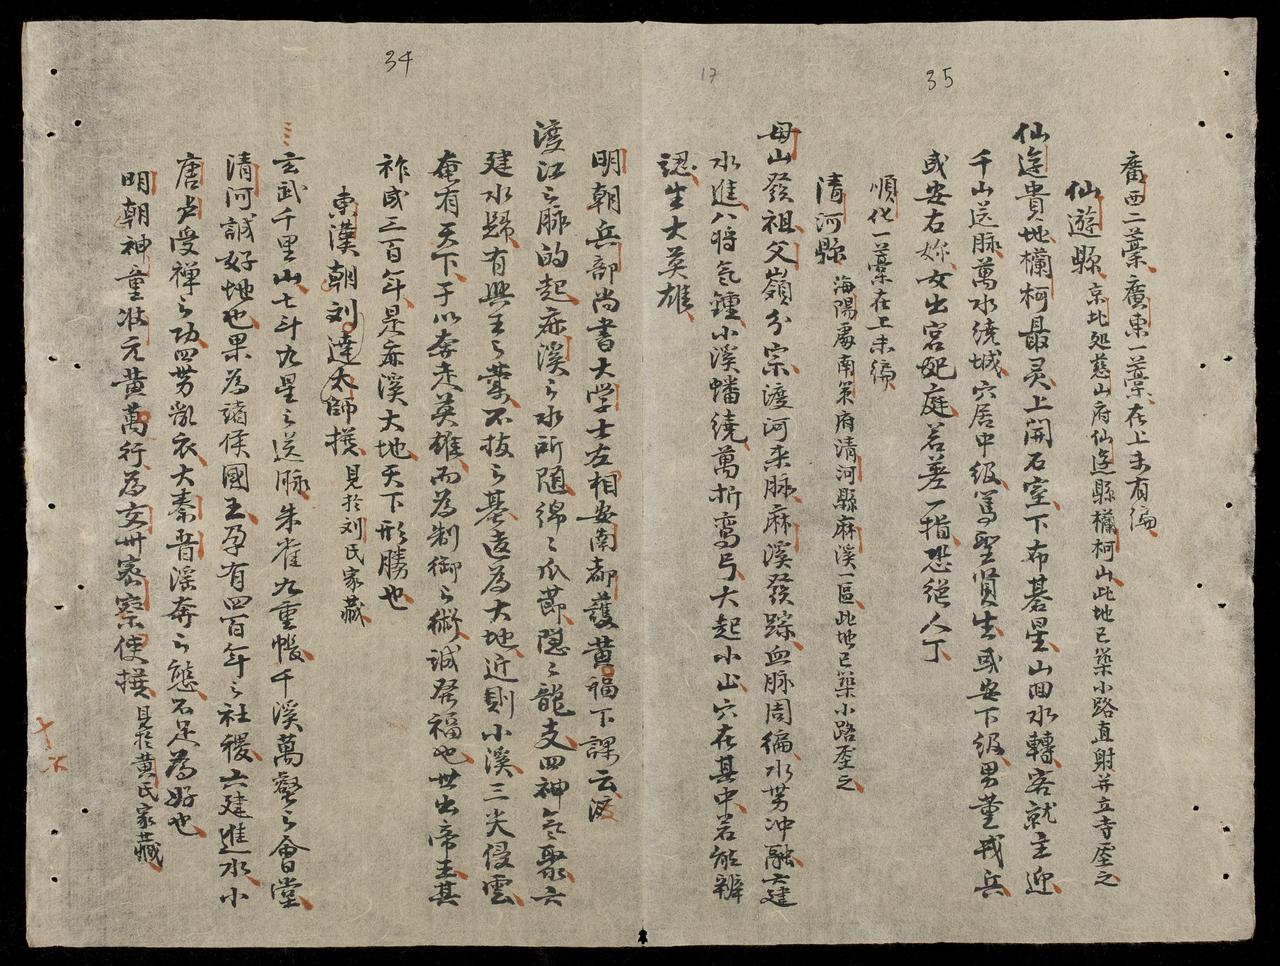 35
17
廣西二藁廣東一藁在上未有編
仙遊縣 京北処慈山府仙遊縣欄柯山此地已築小路直射并立寺壓之
仙遊貴地欄柯最灵上開石室下布碁星山回水轉客就主迎
千山送脉萬水繞城穴居中級篤聖賢生或安下級男董戎兵
或安右妳女出宮妃庭若差一指恐絕人丁
順化一藁在上未編
清河縣 海陽處南策府清河縣麻溪一區此地已築小路壓之
母山發祖父嶺分宗渡河来脉麻溪發踪血脉周編水势冲融六建
水進八將氣鍾小溪蟠繞萬折弯弓大起小山穴在其中若能辨
認生大英雄
34
明朝兵部尚書大学士左相安南都護黄福下課云渡
渡江之脉的起麻溪之水所隨綿〻瓜節隐〻龍支四神氣聚六
建水歸有興王之業不拔之基遠為大地近則小溪三尖侵雲
奄有天下于以奔走英雄而為制御之術誠發福也世出帝王其
祚或三百年是麻溪大地天下形勝也
東漢朝刘達太師撰 見於刘氏家藏
玄武千里山七斗九星之送脉朱雀九重帳千溪萬壑之會堂
清河誠好地也果為諸侯國王孕有四百年之社稷六建進水小
唐虏受禪之功四势龍衣大秦昔淫奔之態不足為好也
明朝神童状元黄萬行為交州密察使撰 見於黄氏家藏
十六